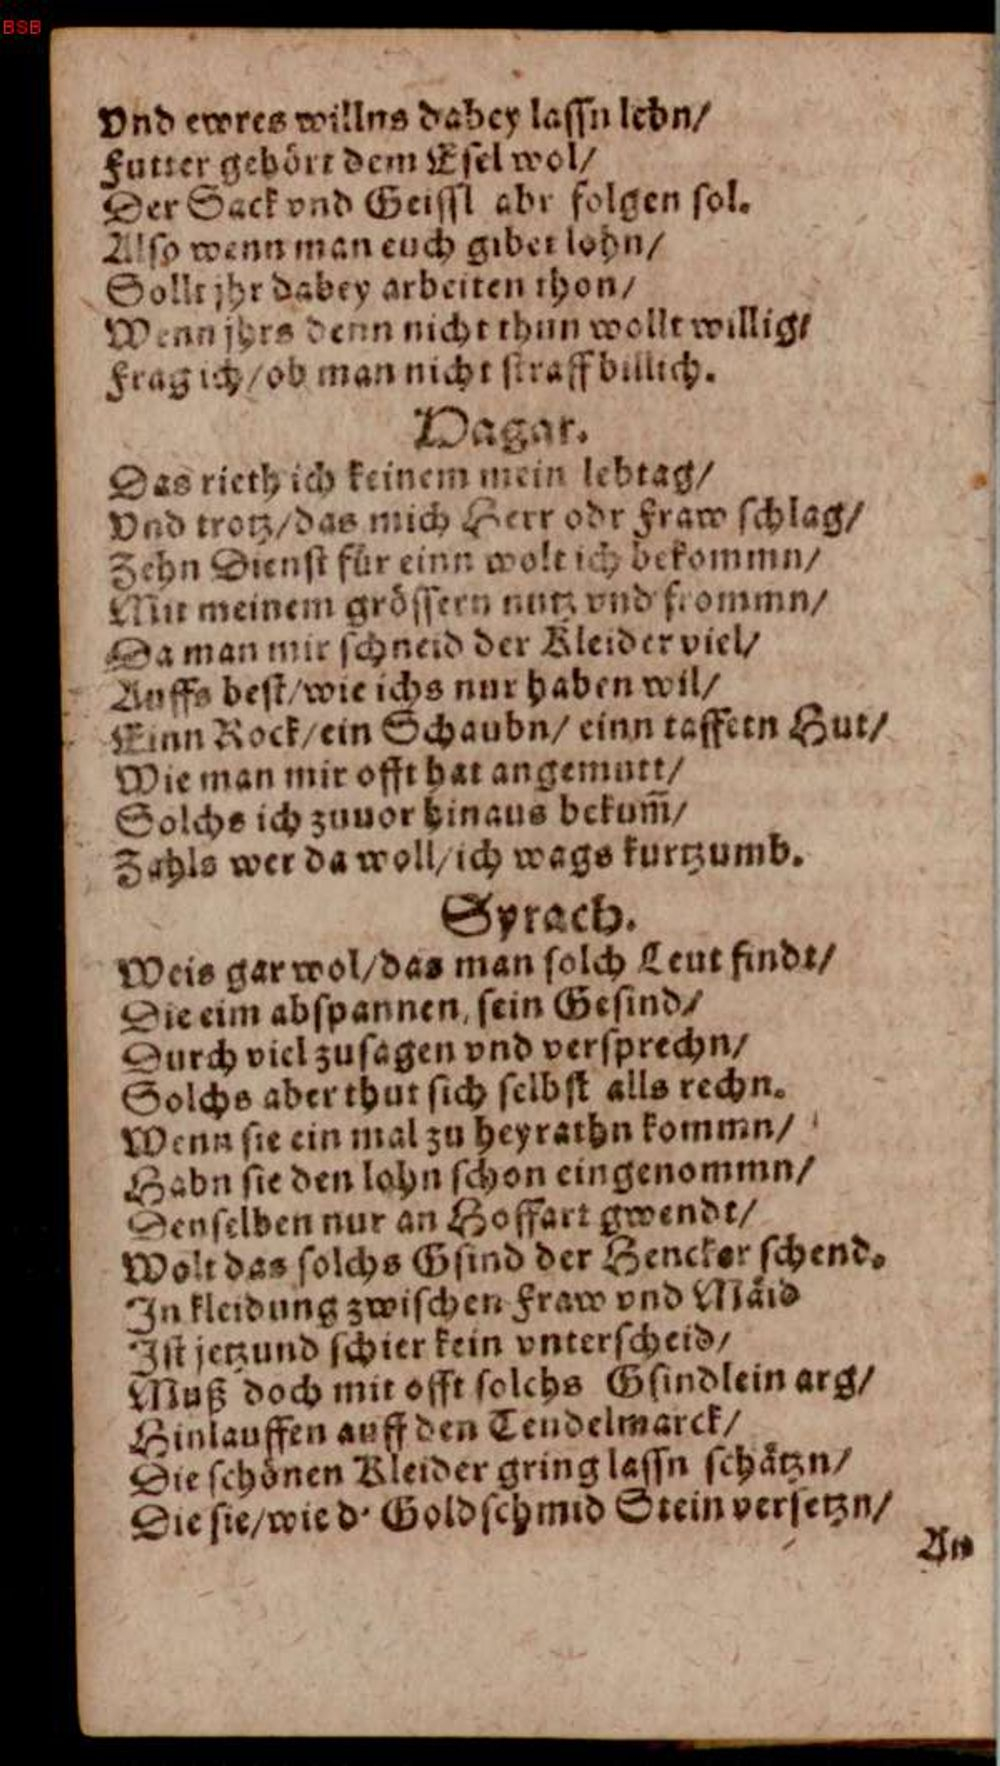 BSB
Vnd ewres willns dabey lassn lebn/
Futter gehört dem Esel wol/
Der Sack vnd Geissl abr folgen sol.
Also wenn man euch gibet lohn/
Sollt jhr dabey arbeiten thon/
Wenn jhrs denn nicht thun wollt willig/
Frag ich/ob man nicht straff billich.
Hagar.
Das rieth ich keinem mein lebtag/
Vnd trotz/das mich Herr odr Fraw schlag/
Zehn Dienst für einn wolt ich bekommn/
Mit meinem grössern nutz vnd frommn/
Da man mir schneid der Kleider viel/
Auffs best/wie ichs nur haben wil/
Einn Rock/ein Schaubn/ einn taffetn Hut/
Wie man mir offt hat angemutt/
Solchs ich zuuor hinaus bekum̃/
Zahls wer da woll/ich wags kurtzumb.
Syrach.
Weis gar wol/das man solch Leut findt/
Die eim abspannen, sein Gesind/
Durch viel zusagen vnd versprechn/
Solchs aber thut sich selbst alls rechn.
Wenn sie ein mal zu heyrathn kommn/
Habn sie den lohn schon eingenommn/
Denselben nur an Hoffart gwendt/
Wolt das solchs Gsind der Hencker schend.
In kleidung zwischen Fraw vnd Mäid
Ist jetzund schier kein vnterscheid/
Muß doch mit offt solchs Gsindlein arg/
Hinlauffen auff den Tendelmarck/
Die schönen Kleider gring lassn schätzn/
Die sie/wie d' Goldschmid Stein versetzn/
An